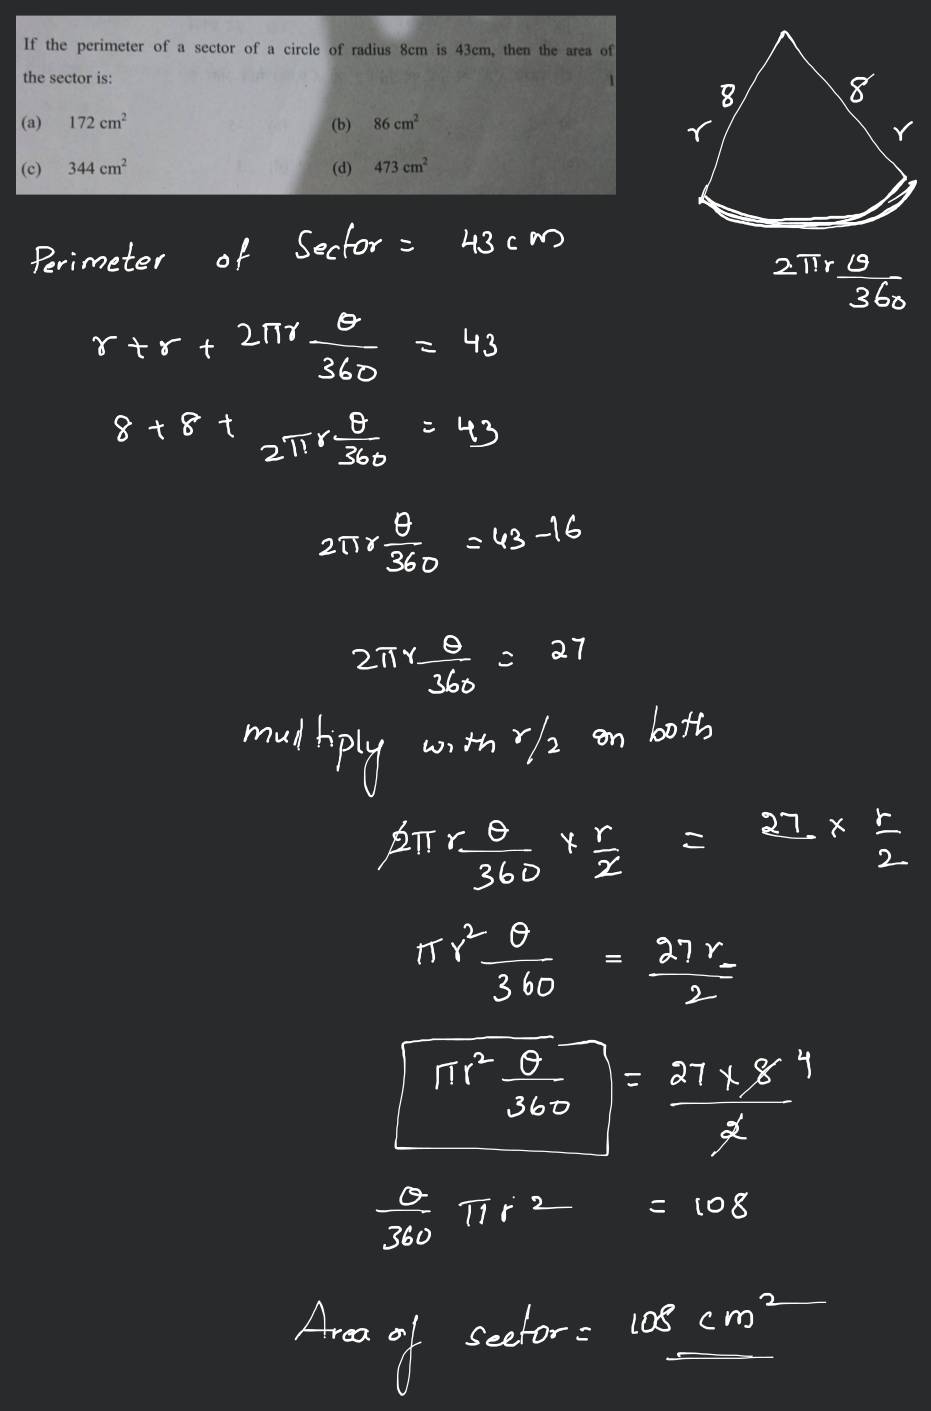 If the perimeter of a sector of a circle of radius 8cm is 43cm, then the area of
the sector is:
1
(a) 172 cm²
(b) 86 cm²
(c) 344 cm²
(d) 473 cm²
8
8
r
r
2πr θ/360
Perimeter of Sector = 43 cm
r + r + 2πr θ/360 = 43
8 + 8 + 2πr θ/360 = 43
2πr θ/360 = 43 - 16
2πr θ/360 = 27
multiply with r/2 on both
2πr θ/360 × r/2 = 27 × r/2
πr² θ/360 = 27r/2
πr² θ/360 = 27 × 8/2 4
θ/360 πr² = 108
Area of sector = 108 cm²